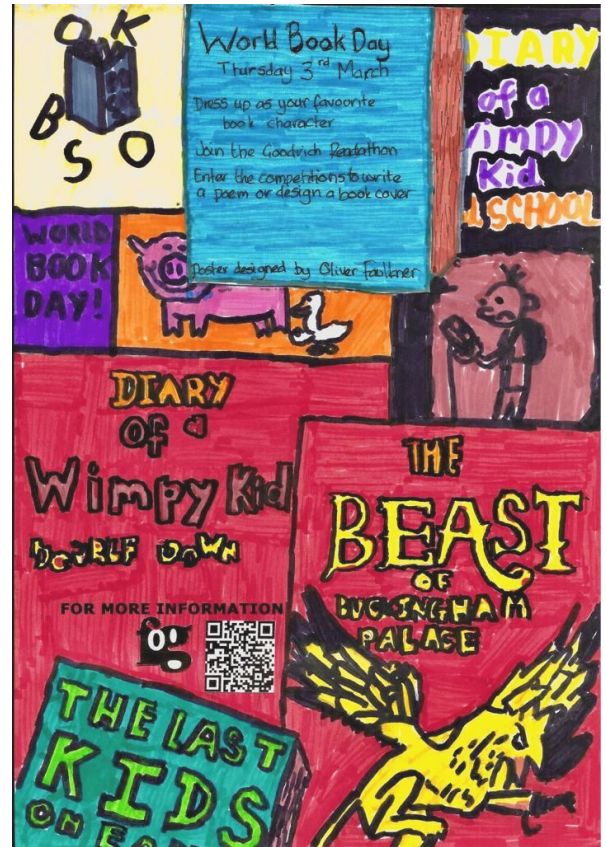 O K
B S O
World Book Day
Thursday 3rd March
Dress up as your favourite
book character
Join the Goodrich Readathon
Enter the competitions to write
a poem or design a book cover
Poster designed by Oliver Faulkner
DIARY
of a
Wimpy
Kid
SCHOOL
WORLD
BOOK
DAY!
DIARY
OF a
Wimpy Kid
DOUBLE DOWN
FOR MORE INFORMATION
THE
BEAST
OF
BUCKINGHAM
PALACE
THE LAST
KIDS
ON EA